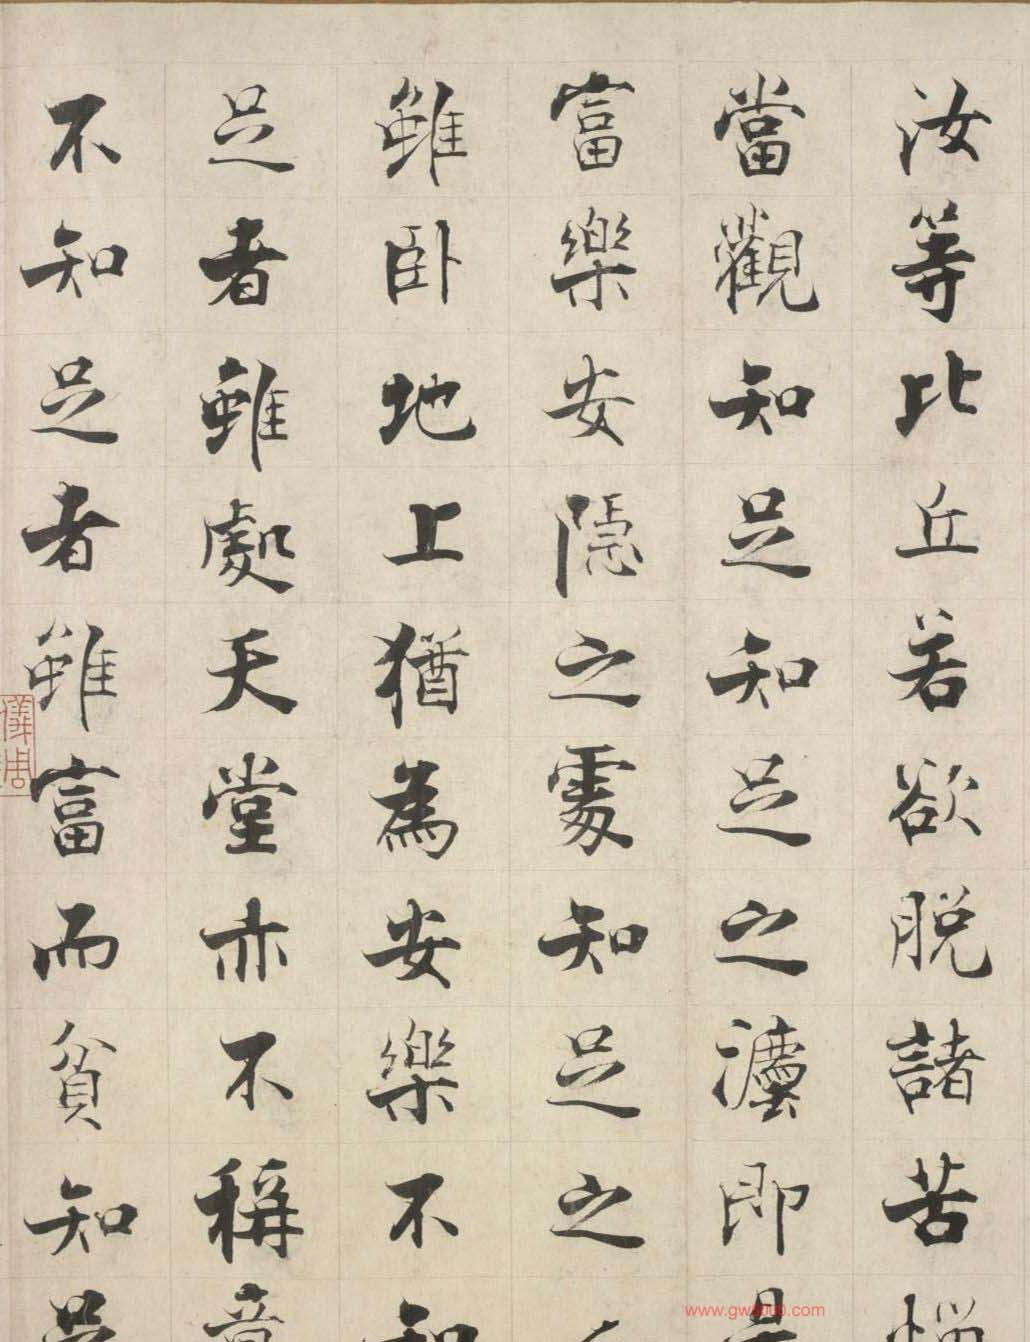 汝等比丘若欲脱諸苦惱
當觀知足知足之灋即是
富樂安隱之處知足之
雖卧地上猶為安樂不知
足者雖處天堂亦不稱意
不知足者雖富而貧知足
www.gw1000.com